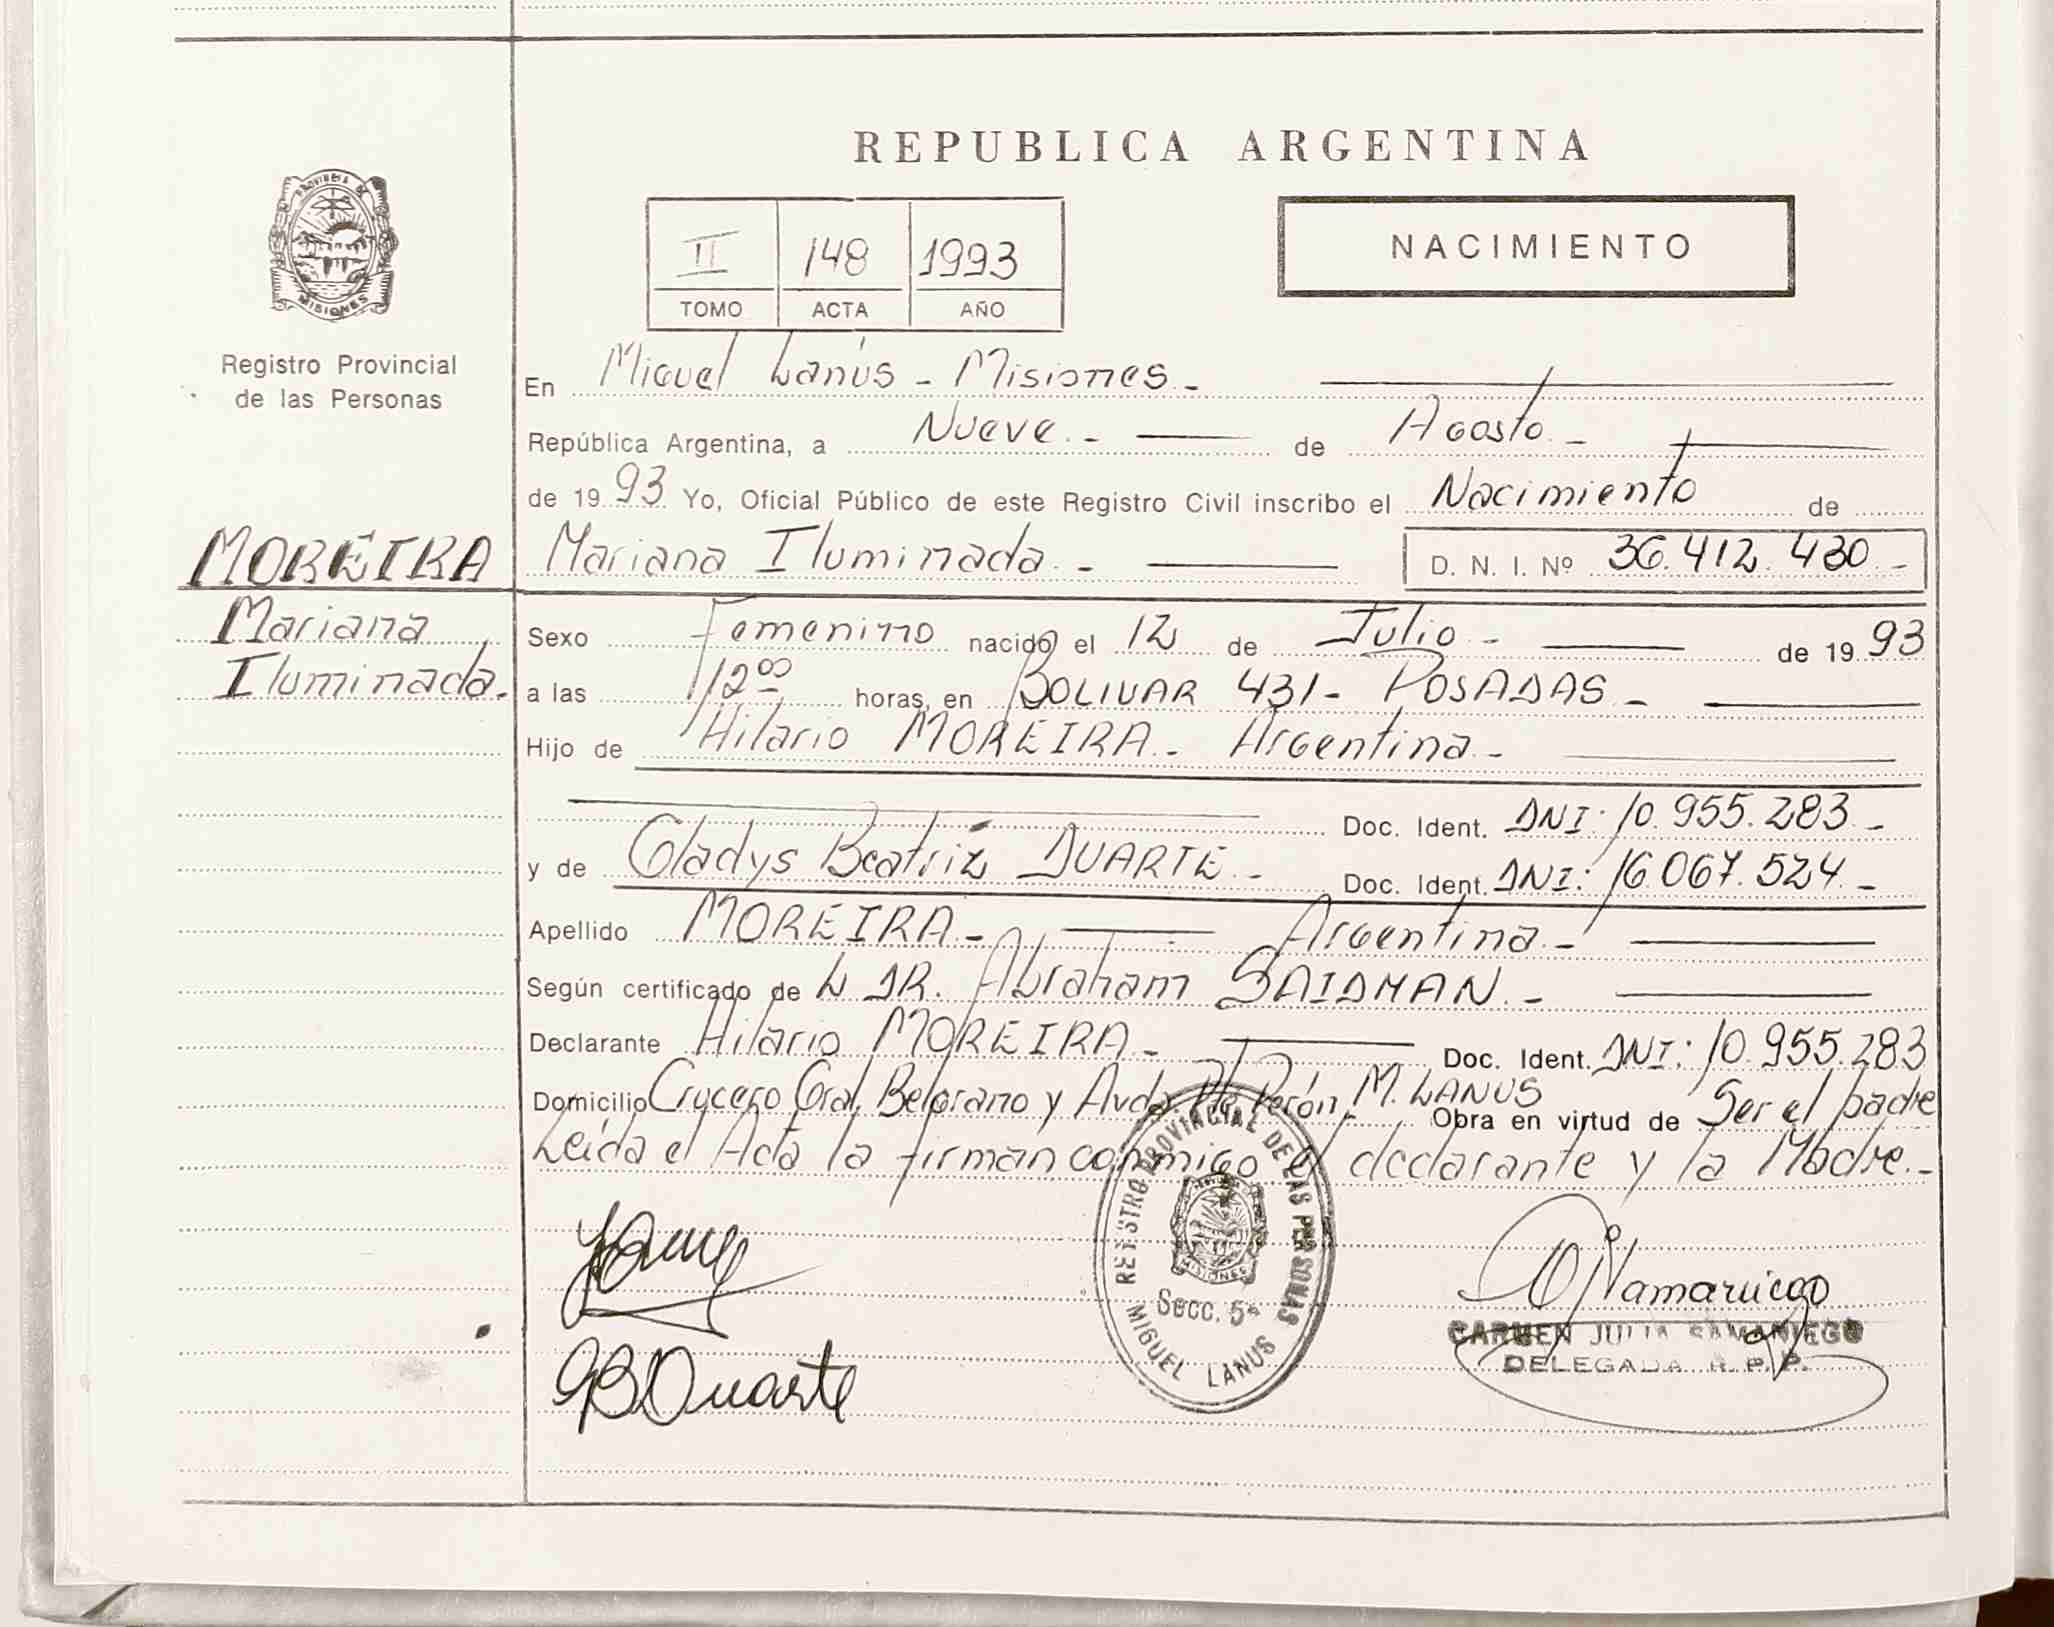 REPUBLICA ARGENTINA
PROVINCIA DE
MISIONES
Registro Provincial
de las Personas
II 148 1993
TOMO ACTA AÑO
NACIMIENTO
En Miguel Lanús - Misiones -
República Argentina, a Nueve - de Agosto -
de 1993 Yo, Oficial Público de este Registro Civil inscribo el Nacimiento de
MOREIRA
Mariana
Iluminada.
Mariana Iluminada - D. N. I. Nº 36.412.430 -
Sexo Femenino nacido el 12 de Julio - de 1993
a las 12 00 horas, en BOLIVAR 431 - POSADAS -
Hijo de Hilario MOREIRA - Argentina -
Doc. Ident. DNI: 10.955.283 -
y de Gladys Beatriz DUARTE - Doc. Ident. DNI: 16.067.524 -
Apellido MOREIRA - Argentina -
Según certificado de L DR. Abraham SAIDMAN -
Declarante Hilario MOREIRA - Doc. Ident. DNI: 10.955.283
Domicilio Crucero Gral. Belgrano y Avda. Pte Perón M. LANUS Obra en virtud de Ser el padre
Leída el Acta la firman conmigo el declarante y la Madre. -
REGISTRO PROVINCIAL DE LAS PERSONAS
MISIONES
Secc. 5ª
MIGUEL LANUS
GBDuarte
CARMEN JULIA SAMANIEGO
DELEGADA R. P. P.